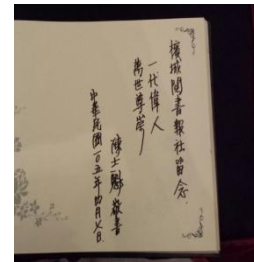 檳城閱書報社留念
一代偉人
萬世尊崇
陳士魁 敬書
中華民國一百五年四月七日